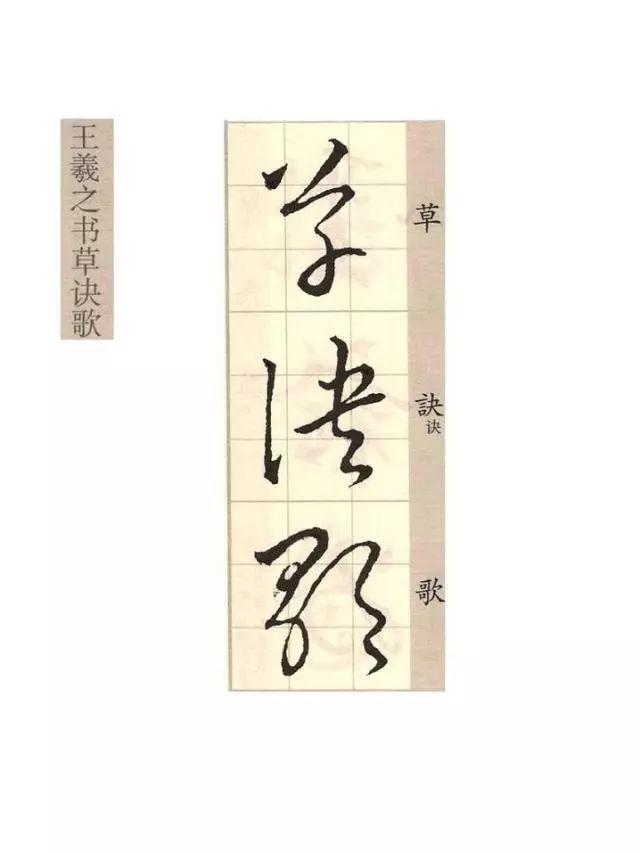 王羲之书草诀歌
草訣歌
草
訣
诀
歌